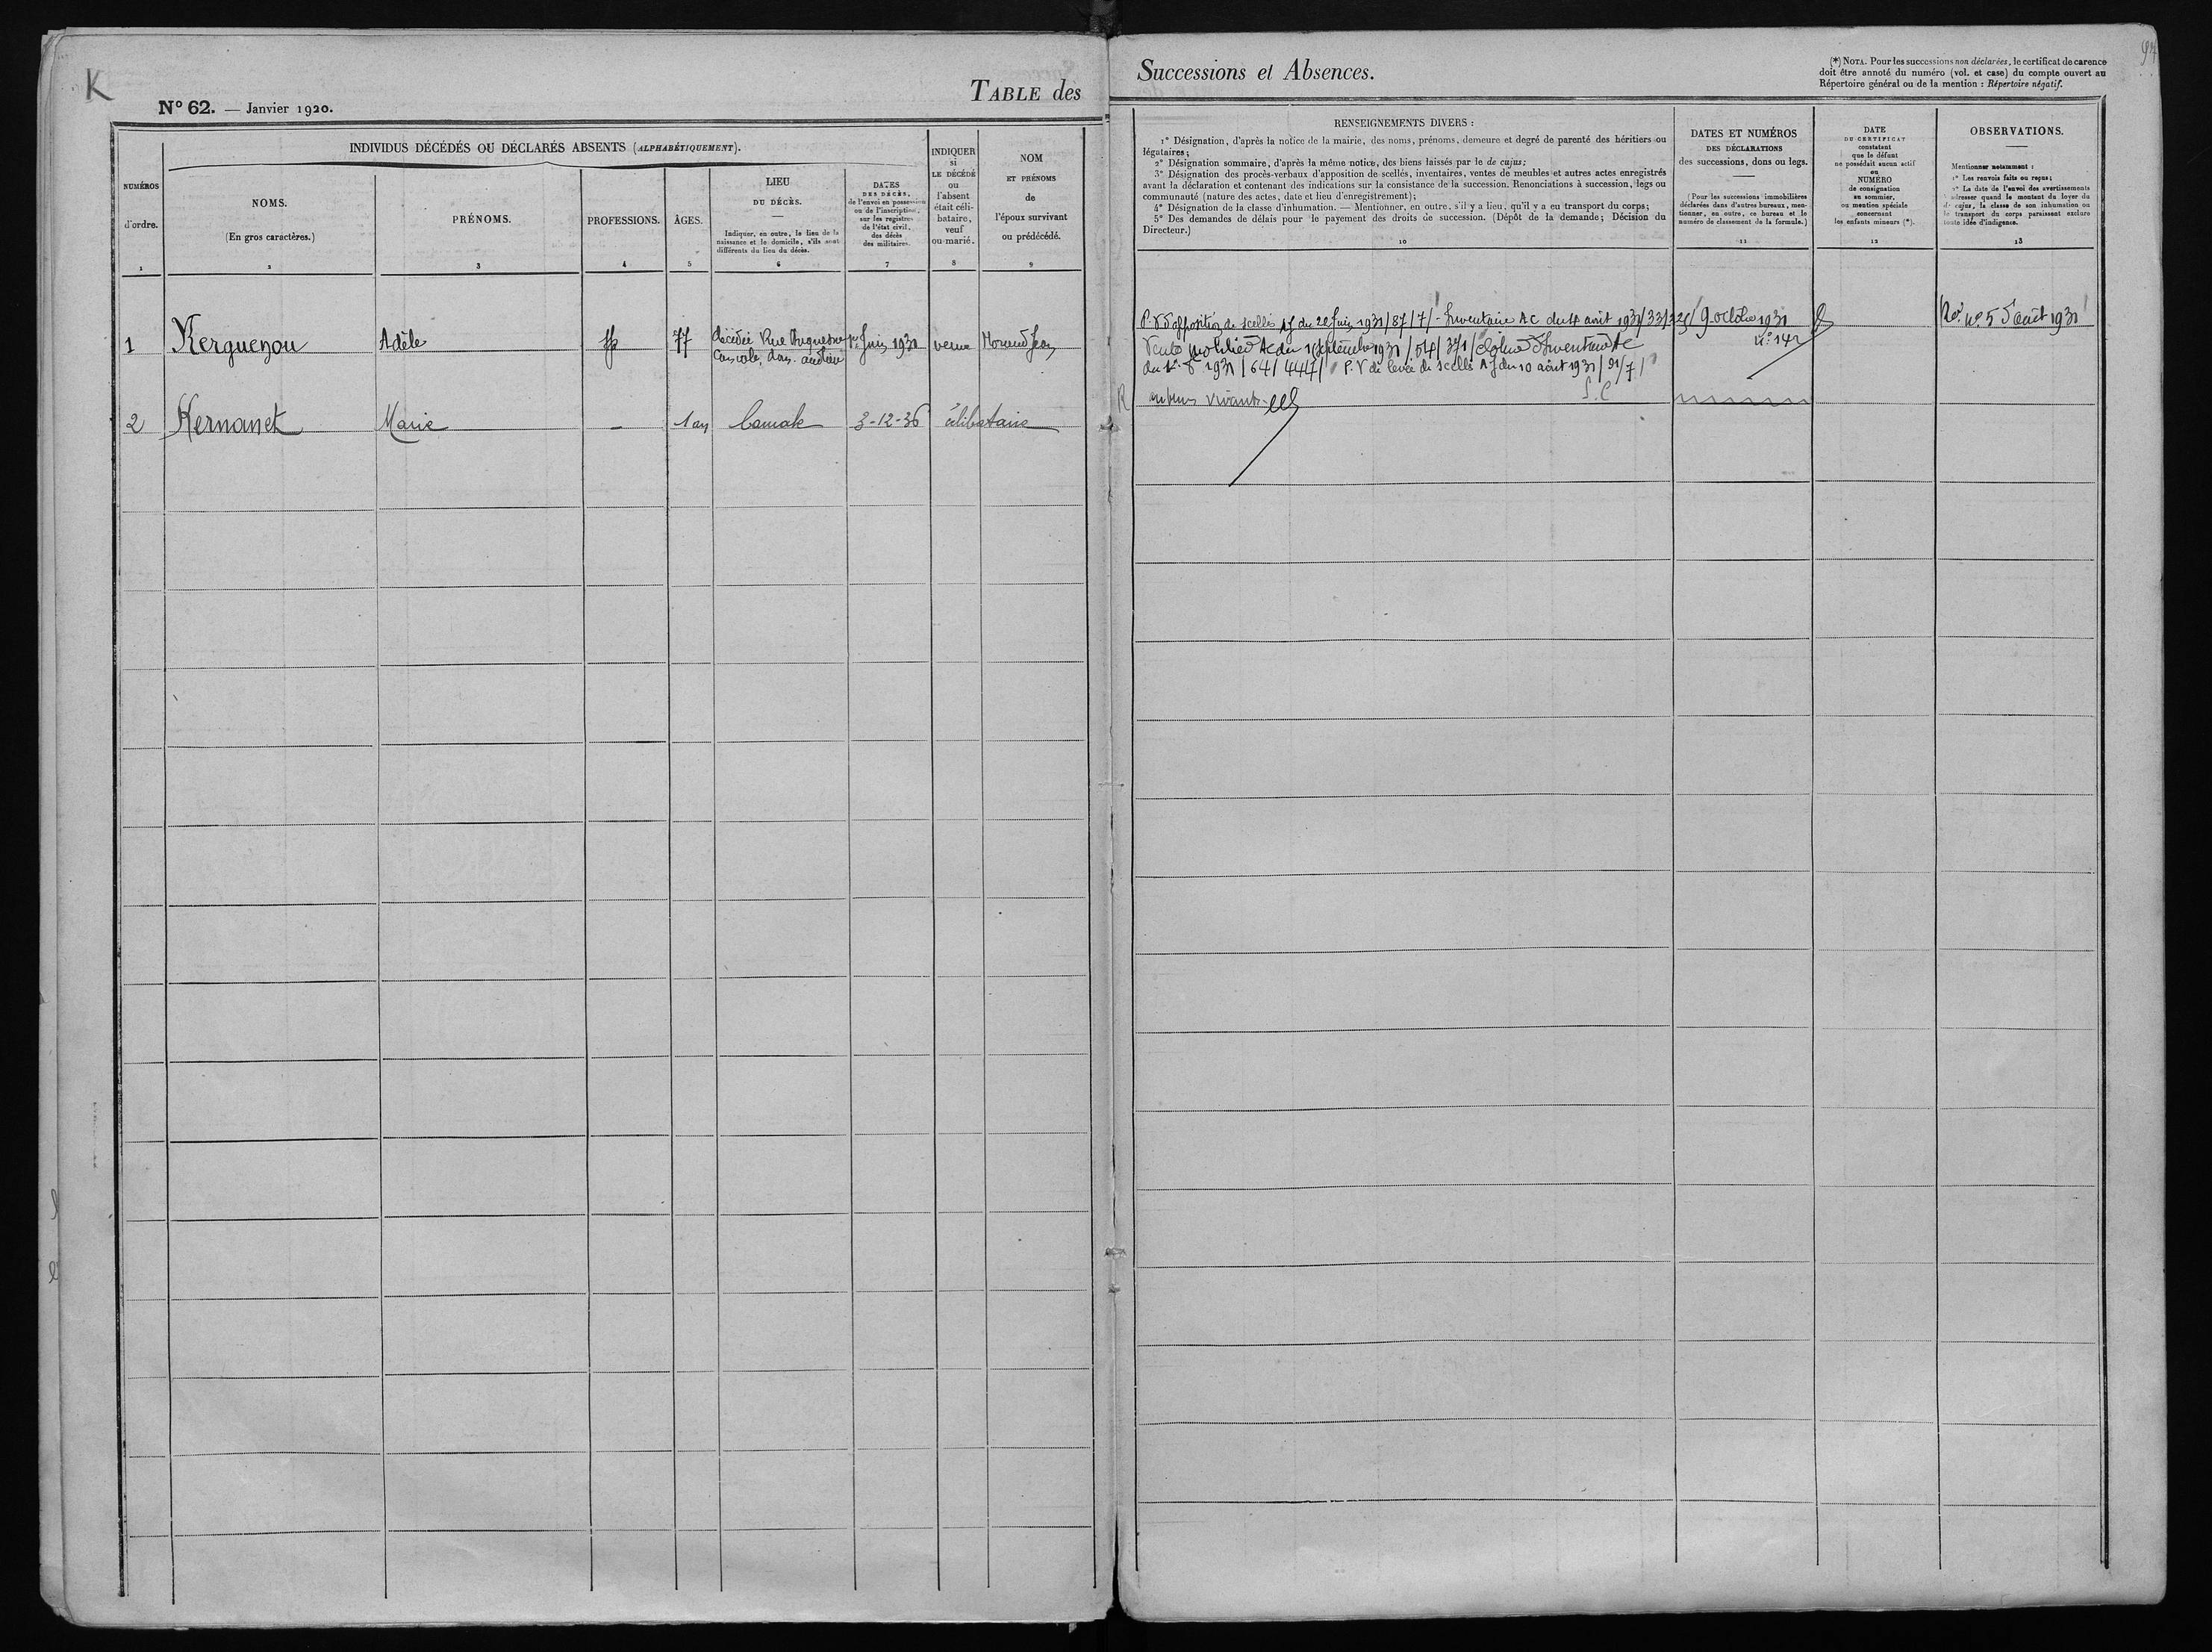 K
N° 62. — Janvier 1920.
TABLE des
INDIVIDUS DÉCÉDÉS OU DÉCLARÉS ABSENTS (ALPHABÉTIQUEMENT).
NUMÉROS
d'ordre.
1
NOMS.
(En gros caractères.)
2
PRÉNOMS.
3
PROFESSIONS.
4
ÂGES.
5
LIEU
DU DÉCÈS.
Indiquer, en outre, le lieu de la
naissance et le domicile, s'ils sont
différents du lieu du décès.
6
DATES
DES DÉCÈS,
de l'envoi en possession
ou de l'inscription,
sur les registres
de l'état civil,
des décès
des militaires.
7
INDIQUER
si
LE DÉCÉDÉ
ou
l'absent
était céli-
bataire,
veuf
ou marié.
8
NOM
ET PRÉNOMS
de
l'époux survivant
ou prédécédé.
9
1 Kerguenou Adèle 77 décédée Rue 1er Juin 1931 veuve Jean
2 Kernanet Marie — 1 an 3-12-36 célibataire
Successions et Absences.
(*) NOTA. Pour les successions non déclarées, le certificat de carence
doit être annoté du numéro (vol. et case) du compte ouvert au
Répertoire général ou de la mention : Répertoire négatif.
RENSEIGNEMENTS DIVERS :
1° Désignation, d'après la notice de la mairie, des noms, prénoms, demeure et degré de parenté des héritiers ou
légataires;
2° Désignation sommaire, d'après la même notice, des biens laissés par le de cujus;
3° Désignation des procès-verbaux d'apposition de scellés, inventaires, ventes de meubles et autres actes enregistrés
avant la déclaration et contenant des indications sur la consistance de la succession. Renonciations à succession, legs ou
communauté (nature des actes, date et lieu d'enregistrement);
4° Désignation de la classe d'inhumation. — Mentionner, en outre, s'il y a lieu, qu'il y a eu transport du corps;
5° Des demandes de délais pour le payement des droits de succession. (Dépôt de la demande; Décision du
Directeur.)
10
DATES ET NUMÉROS
DES DÉCLARATIONS
des successions, dons ou legs.
(Pour les successions immobilières
déclarées dans d'autres bureaux, men-
tionner, en outre, ce bureau et le
numéro de classement de la formule.)
11
DATE
DU CERTIFICAT
constatant
que le défunt
ne possédait aucun actif
ou
NUMÉRO
de consignation
au sommier,
ou mention spéciale
concernant
les enfants mineurs (*).
12
OBSERVATIONS.
Mentionner notamment :
1° Les renvois faits ou reçus;
2° La date de l'envoi des avertissements
à adresser quand le montant du loyer du
de cujus, la classe de son inhumation ou
le transport du corps paraissent exclure
toute idée d'indigence.
13
P.V d'apposition de scellés AJ du 22 Juin 1931/87/7/ - Inventaire AC du 4 août 1931/33/325/ 9 octobre 1931
n° 142
n° 5 5 août 1931
Vente mobilier AC du septembre 1931 /54/371/ clôture d'Inventaire AC
du 1931 /64/447/ P.V de levée de scellés AJ du 10 août 1931 /91/7/
R vivants S.C